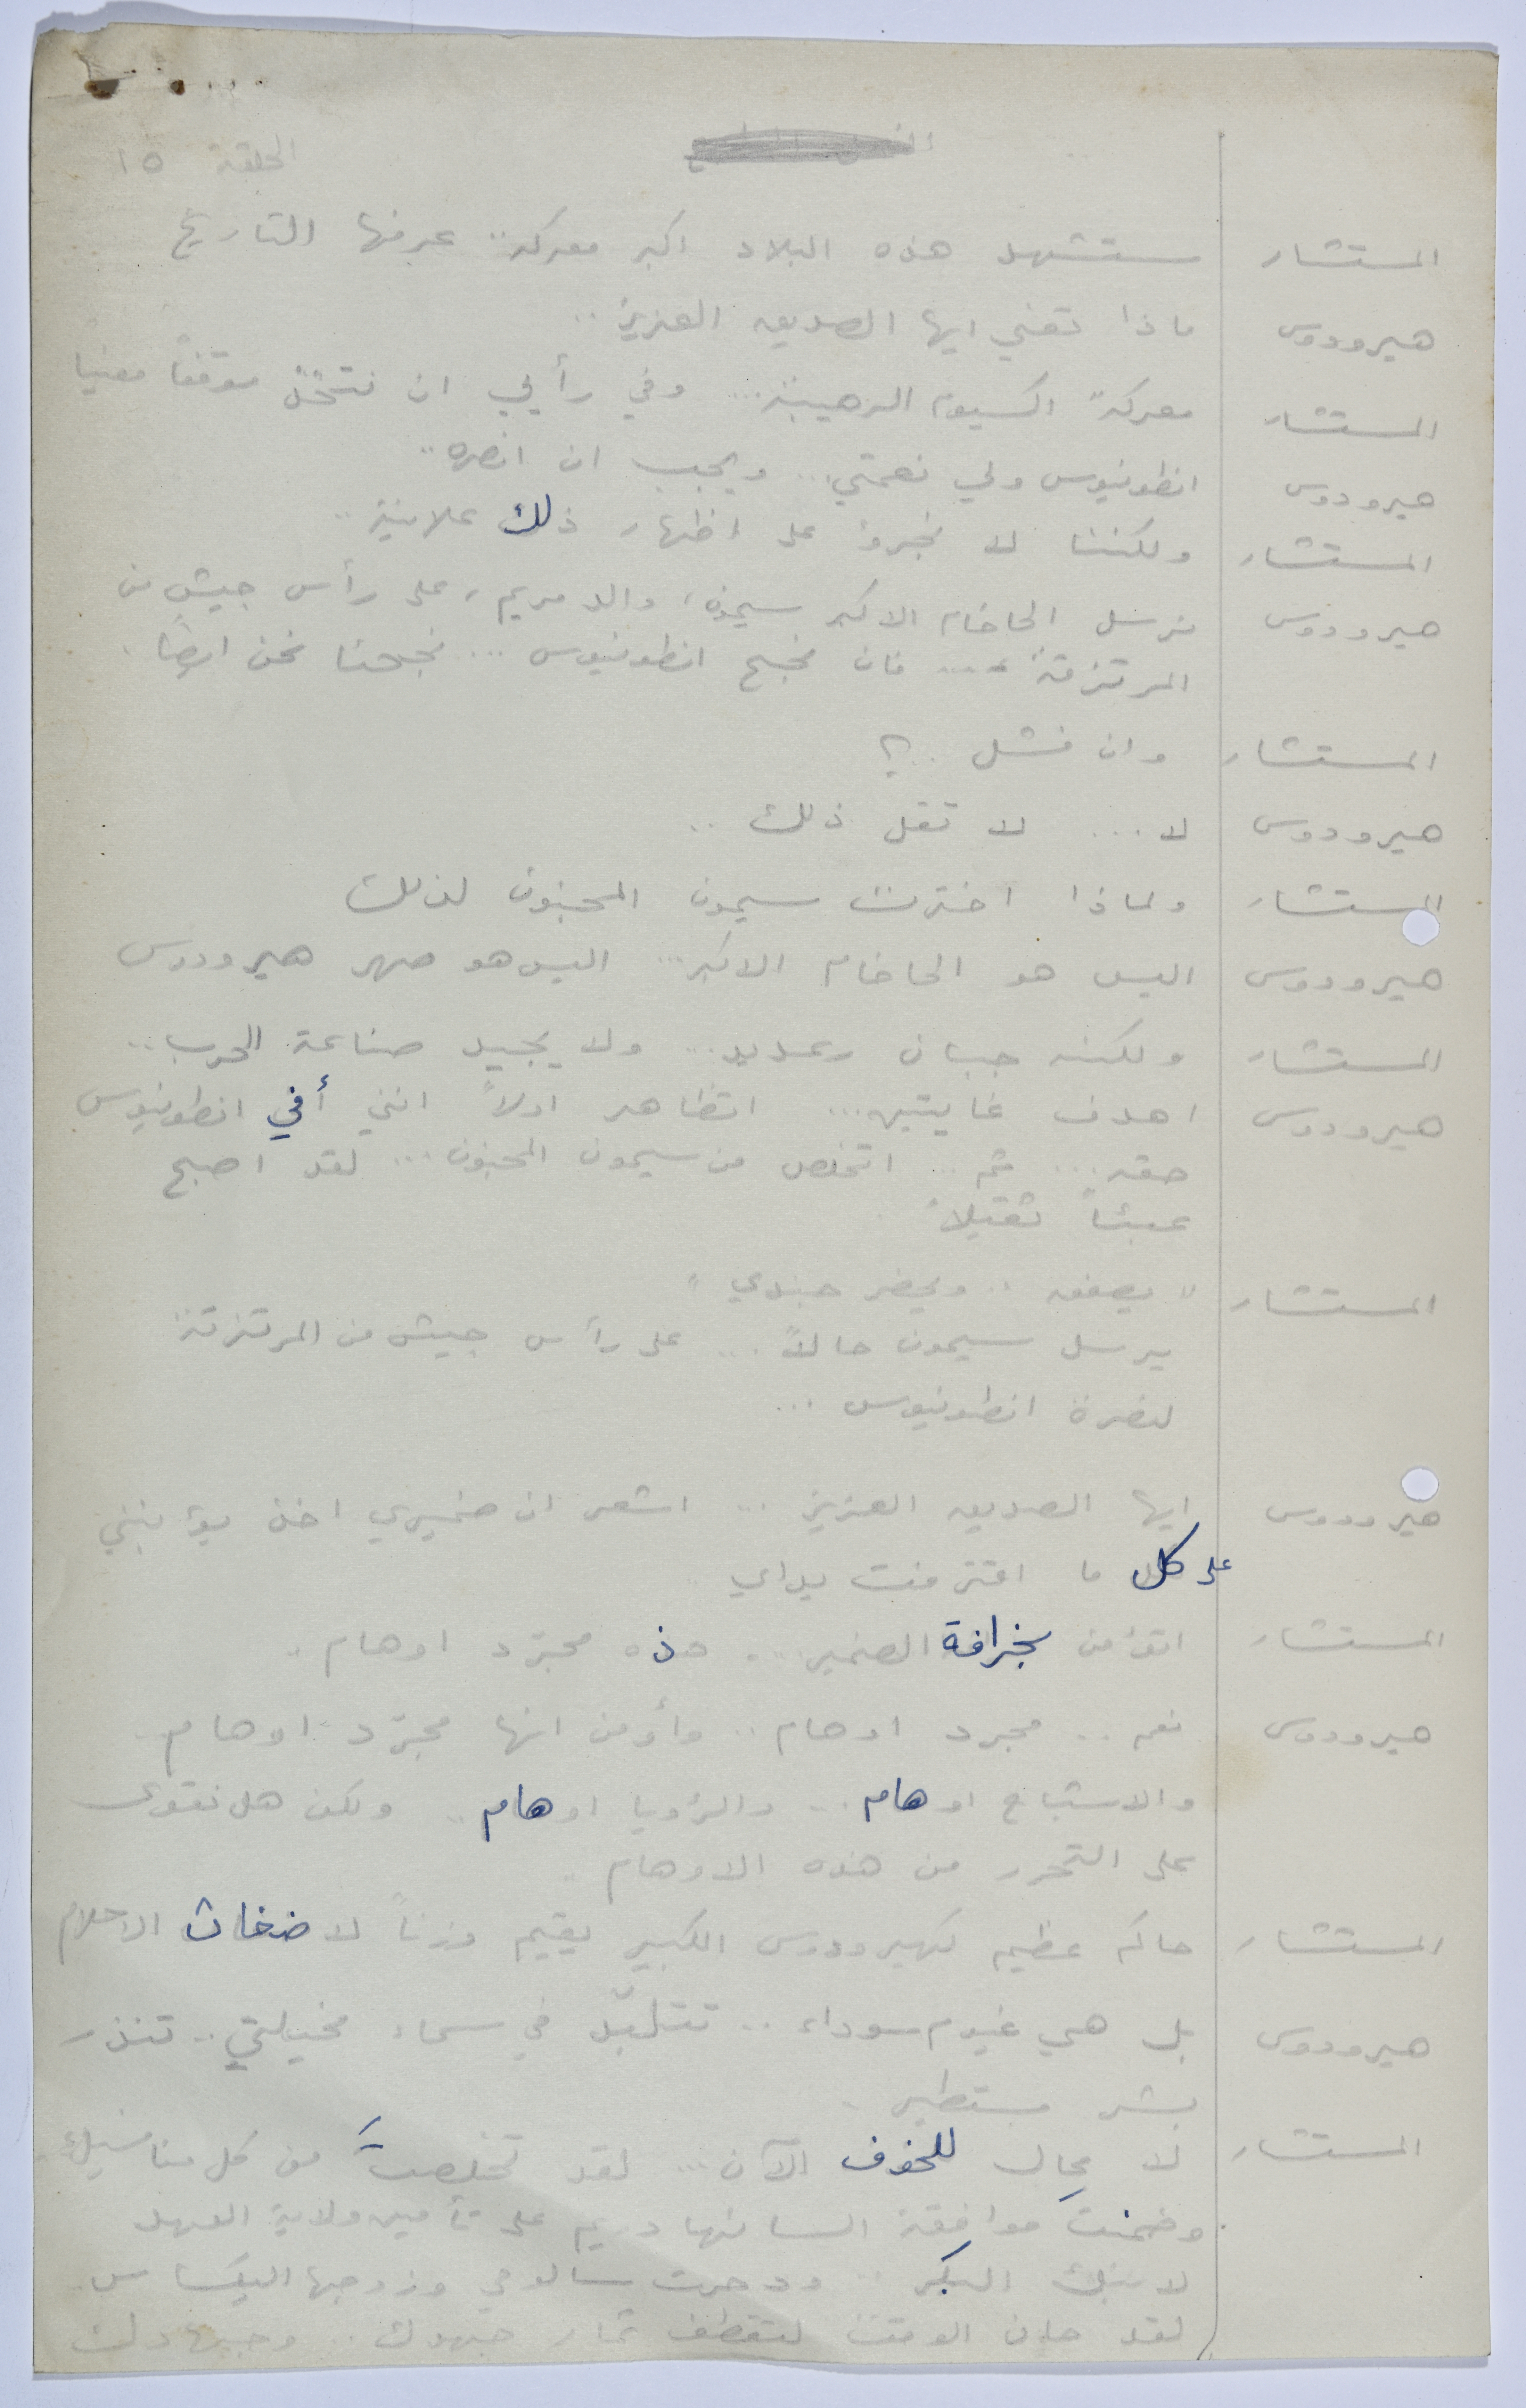 الحلقة ١٥
المستشار ستشهد هذه البلاد اكبر معركة.. عرفها التاريخ
هيرودوس ماذا تعني ايها الصديق العزيز..
المستشار معركة اكسيوم الرهيبة... وفي رأيي ان نتخذ موقفاً معنيا
هيرودوس انطونيوس ولي نعمتي... ويجب ان انصره..
المستشار ولكننا لا نجرؤ على اظهار ذلك علانية..
هيرودوس نرسل الحاخام الاكبر سيمون، والد مريم، على رأس جيش من
المرتزقة .... فان نجح انطونيوس ... نجحنا نحن ايضاً.
المستشار وان فشل ..؟
هيرودوس لا ... لا تقل ذلك ..
المستشار ولماذا اخترت سيمون المجنون لذلك
هيرودوس اليس هو الحاخام الاكبر... اليس هو صهر هيرودوس
المستشار ولكنه جبان رعديد... ولا يجيد صناعة الحرب..
هيرودوس اهدف غايتين... اتظاهر اولاً انني أفي انطونيوس
حقه ... ثم ... اتخلص من سيمون المجنون... لقد اصبح
عبئاً ثقيلاً.
المستشار " يصفق .. ويحضر جندي "
يرسل سيمون حالاً ... على رأس جيش من المرتزقة
لنصرة انطونيوس ...
هيرودوس ايها الصديق العزيز ... اشعر ان ضميري اخذ يؤنبني
على كل ما اقترفت يداي
المستشار اتؤمن بخرافة الضمير ... هذه مجرّد اوهام..
هيرودوس نعم .. مجرد اوهام .. وأؤمن انها مجرّد اوهام
والاشباح اوهام... والرؤيا اوهام.. ولكن هل نقوى
على التحرر من هذه الاوهام ..
المستشار حاكم عظيم كهيرودوس الكبير يقيم وزناً لاضغاث الاحلام
هيرودوس بل هي غيوم سوداء .. تتلبّد في سماء مخيلتي.. تنذر
بشر مستطير .
المستشار لا مجال للخوف الآن ... لقد تخلصتَ من كل منافسيك
وضمنت موافقة السانهادريم على تأمين ولاية العهد
لابنك البكر .. ودحرت سالومي وزوجها اليكساس
لقد حان الوقت لتقطف ثمار جهودك .. وجهادك